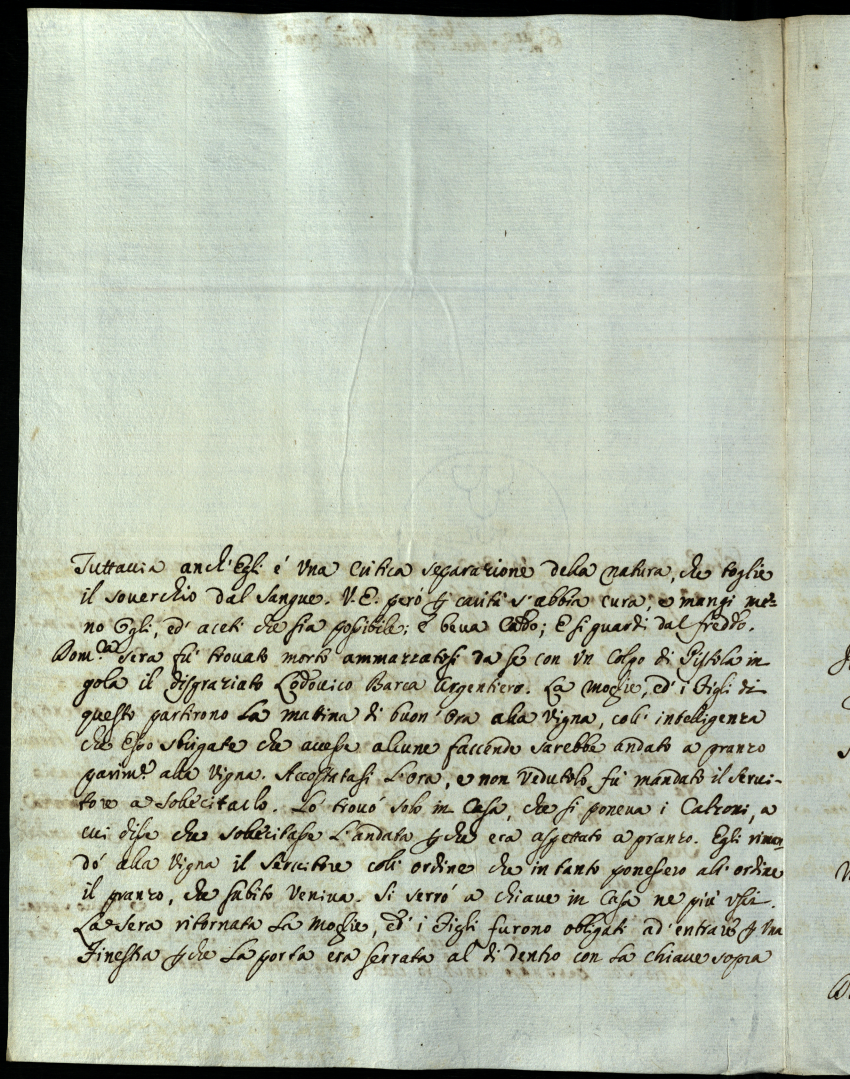 Tuttavia anch'Egli é Una Critica separazione della Natura, che toglie
il souerchio dal Sangue. V.E. però ꝑ carità s'abbia cura, e mangi me=
no Ogli, ed' aceti che sia possibile; e beva Caldo; E si guardi dal freddo.
Dom.ca Sera fù trovato morto ammazzatosi da se con Un Colpo di Pistola in
gola il disgraziato Lodovico Barca Argentiero. La Moglie, ed' i Figli di
questo partirono La matina di buon' Ora alla Vigna, coll' intelligenza
che Esso sbrigate che avesse alcune faccende sarebbe andato a pranzo
parim.e alla Vigna. Accostatasi L'Ora, e non Vedutolo, fù mandato il Servi-
tore a Sollecitarlo. Lo trovó solo in Casa, che si poneva i Calzoni, a
cui disse che sollecitasse L'andata ꝑche era aspettato a pranzo. Egli riman-
dó alla Vigna il Servitore coll' ordine che in tanto ponessero all' ordine
il pranzo, che subito Veniva. Si serró a chiave in Casa ne più Uscì.
La Sera ritornata La Moglie, ed' i Figli furono obligati ad' entrare ꝑ Una
Finestra ꝑche La porta era serrata al di dentro con La chiave sopra